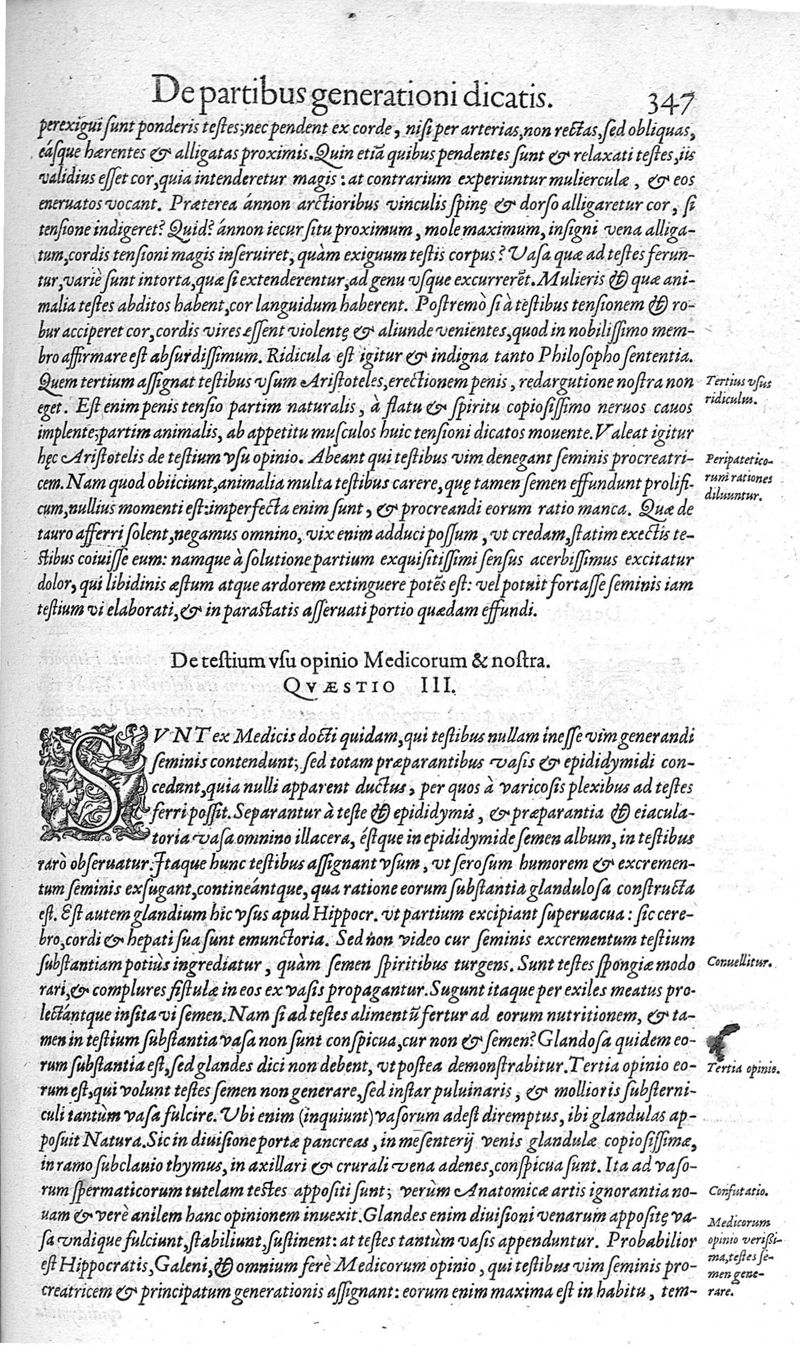 De partibus generationi dicatis. 347
perexigui sunt ponderis testes; nec pendent ex corde, nisi per arterias, non rectas, sed obliquas,
eásque hærentes & alligatas proximis. Quin etiã quibus pendentes sunt & relaxati testes, iis
validius esset cor, quia intenderetur magis: at contrarium experiuntur mulierculæ, & eos
eneruatos vocant. Præterea ánnon arctioribus vinculis spinę & dorso alligaretur cor, si
tensione indigeret? Quid? ánnon iecur situ proximum, mole maximum, insigni vena alliga-
tum, cordis tensioni magis inseruiret, quàm exiguum testis corpus? Vasa quæ ad testes ferun-
tur, variè sunt intorta, quæ si extenderentur, ad genu vsque excurrerẽt. Mulieris & quæ ani-
malia testes abditos habent, cor languidum haberent. Postremò si à testibus tensionem & ro-
bur acciperet cor, cordis vires essent violentę & aliunde venientes, quod in nobilissimo mem-
bro affirmare est absurdissimum. Ridicula est igitur & indigna tanto Philosopho sententia.
Quem tertium assignat testibus vsum Aristoteles, erectionem penis, redargutione nostra non
eget. Est enim penis tensio partim naturalis, à flatu & spiritu copiosissimo neruos cauos
implente; partim animalis, ab appetitu musculos huic tensioni dicatos mouente. Valeat igitur
hęc Aristotelis de testium vsu opinio. Abeant qui testibus vim denegant seminis procreatri-
cem. Nam quod obiiciunt, animalia multa testibus carere, quę tamen semen effundunt prolifi-
cum, nullius momenti est: imperfecta enim sunt, & procreandi eorum ratio manca. Quæ de
tauro afferri solent, negamus omnino, vix enim adduci possum, vt credam, statim exectis te-
stibus coiuisse eum: namque à solutione partium exquisitissimi sensus acerbissimus excitatur
dolor, qui libidinis æstum atque ardorem extinguere potẽs est: vel potuit fortasse seminis iam
testium vi elaborati, & in parastatis asseruati portio quædam effundi.
Tertius vsus
ridiculus.
Peripatetico-
rum rationes
diluuntur.
De testium vsu opinio Medicorum & nostra.
QVÆSTIO III.
SVNT ex Medicis docti quidam, qui testibus nullam inesse vim generandi
seminis contendunt; sed totam præparantibus vasis & epididymidi con-
cedunt, quia nulli apparent ductus, per quos à varicosis plexibus ad testes
ferri possit. Separantur à teste & epididymis, & præparantia & eiacula-
toria vasa omnino illacera, éstque in epididymide semen album, in testibus
rarò obseruatur. Itaque hunc testibus assignant vsum, vt serosum humorem & excremen-
tum seminis exsugant, contineántque, qua ratione eorum substantia glandulosa constructa
est. Est autem glandium hic vsus apud Hippocr. vt partium excipiant superuacua: sic cere-
bro, cordi & hepati sua sunt emunctoria. Sed non video cur seminis excrementum testium
substantiam potiùs ingrediatur, quàm semen spiritibus turgens. Sunt testes spongiæ modo
rari, & complures fistulæ in eos ex vasis propagantur. Sugunt itaque per exiles meatus pro-
lectántque insita vi semen. Nam si ad testes alimentũ fertur ad eorum nutritionem, & ta-
men in testium substantia vasa non sunt conspicua, cur non & semen? Glandosa quidem eo-
rum substantia est, sed glandes dici non debent, vt postea demonstrabitur. Tertia opinio eo-
rum est, qui volunt testes semen non generare, sed instar puluinaris, & mollioris substerni-
culi tantùm vasa fulcire. Vbi enim (inquiunt) vasorum adest diremptus, ibi glandulas ap-
posuit Natura. Sic in diuisione portæ pancreas, in mesenterij venis glandulæ copiosissimæ,
in ramo subclauio thymus, in axillari & crurali vena adenes, conspicua sunt. Ita ad vaso-
rum spermaticorum tutelam testes appositi sunt; verùm Anatomicæ artis ignorantia no-
uam & verè anilem hanc opinionem inuexit. Glandes enim diuisioni venarum appositę va-
sa vndique fulciunt, stabiliunt, sustinent: at testes tantùm vasis appenduntur. Probabilior
est Hippocratis, Galeni, & omnium ferè Medicorum opinio, qui testibus vim seminis pro-
creatricem & principatum generationis assignant: eorum enim maxima est in habitu, tem-
Conuellitur.
Tertia opinio.
Confutatio.
Medicorum
opinio verissi-
ma, testes se-
men gene-
rare.